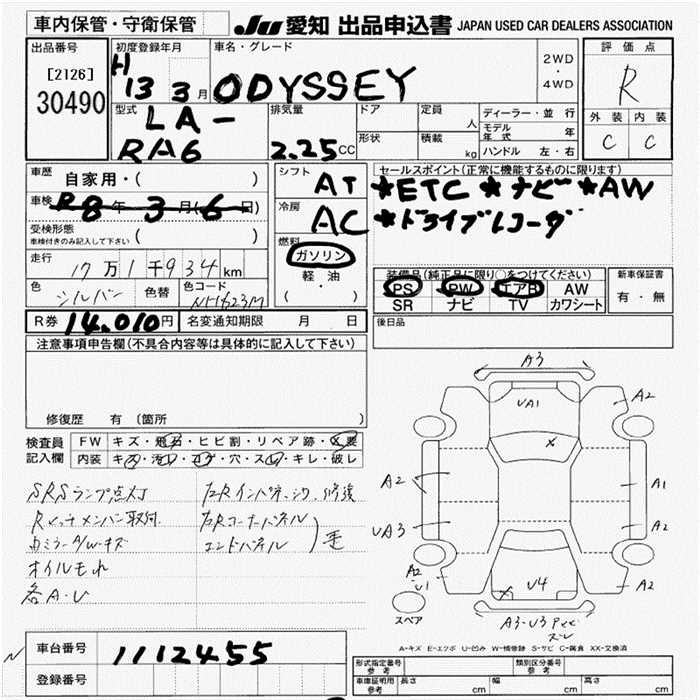 車内保管・守衛保管 JU 愛知 出品申込書 JAPAN USED CAR DEALERS ASSOCIATION
出品番号 初度登録年月 車名・グレード 2WD・4WD 評価点
[2126] H 13 3月 ODYSSEY R
30490 型式 排気量 ドア 定員 人 ディーラー・並行 外装 内装
LA- モデル年式 年 C C
RA6 2.25CC 形状 積載 kg ハンドル 左・右
車歴 自家用・( ) シフト AT セールスポイント(正常に機能するものに限ります)
車検 R8年3月(6日) 冷房 AC ★ETC ★ナビ ★AW
受検形態 車検付きのみ記入して下さい ( ) ★ドライブレコーダ
燃料 ガソリン
走行 17万1千934km 軽・油
( )
装備品(純正品に限り○をつけてください) 新車保証書
PS PW エアB AW 有・無
SR ナビ TV カワシート
色 シルバー 色替 色コード NH623M
R券 14,010円 名変通知期限 月 日 後日品
注意事項申告欄(不具合内容等は具体的に記入して下さい)
修復歴 有 (箇所 )
検査員 FW キズ・飛石・ヒビ割・リペア跡・X要
記入欄 内装 キズ・汚レ・コゲ・穴・スレ・キレ・破レ
SRSランプ点灯
オイルモれ
各A・U
コーナーパネル
エンドパネル
A3
UA1
A2
A2
A1
UA3
A2
A2
U1
U4
A2
A3・U3
スペア
A-キズ E-エクボ U-凹み W-補修跡 S-サビ C-腐食 XX-交換済
車台番号 1112455
登録番号
形式指定番号 参考 類別区分番号 参考
車庫証明用 参考 長さ cm 幅 cm 高さ cm